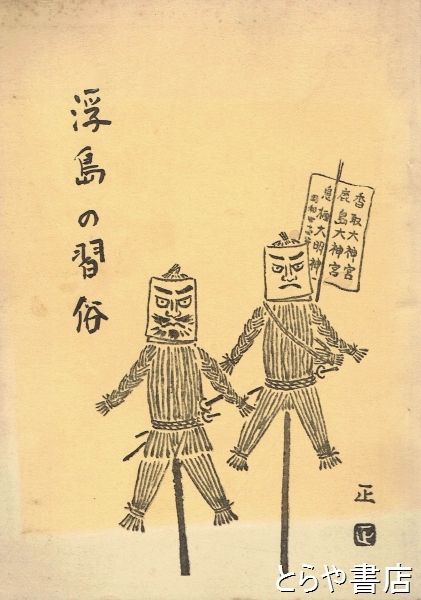 浮島の習俗
香取大神宮
鹿島大神宮
息栖大明神
正
正
とらや書店